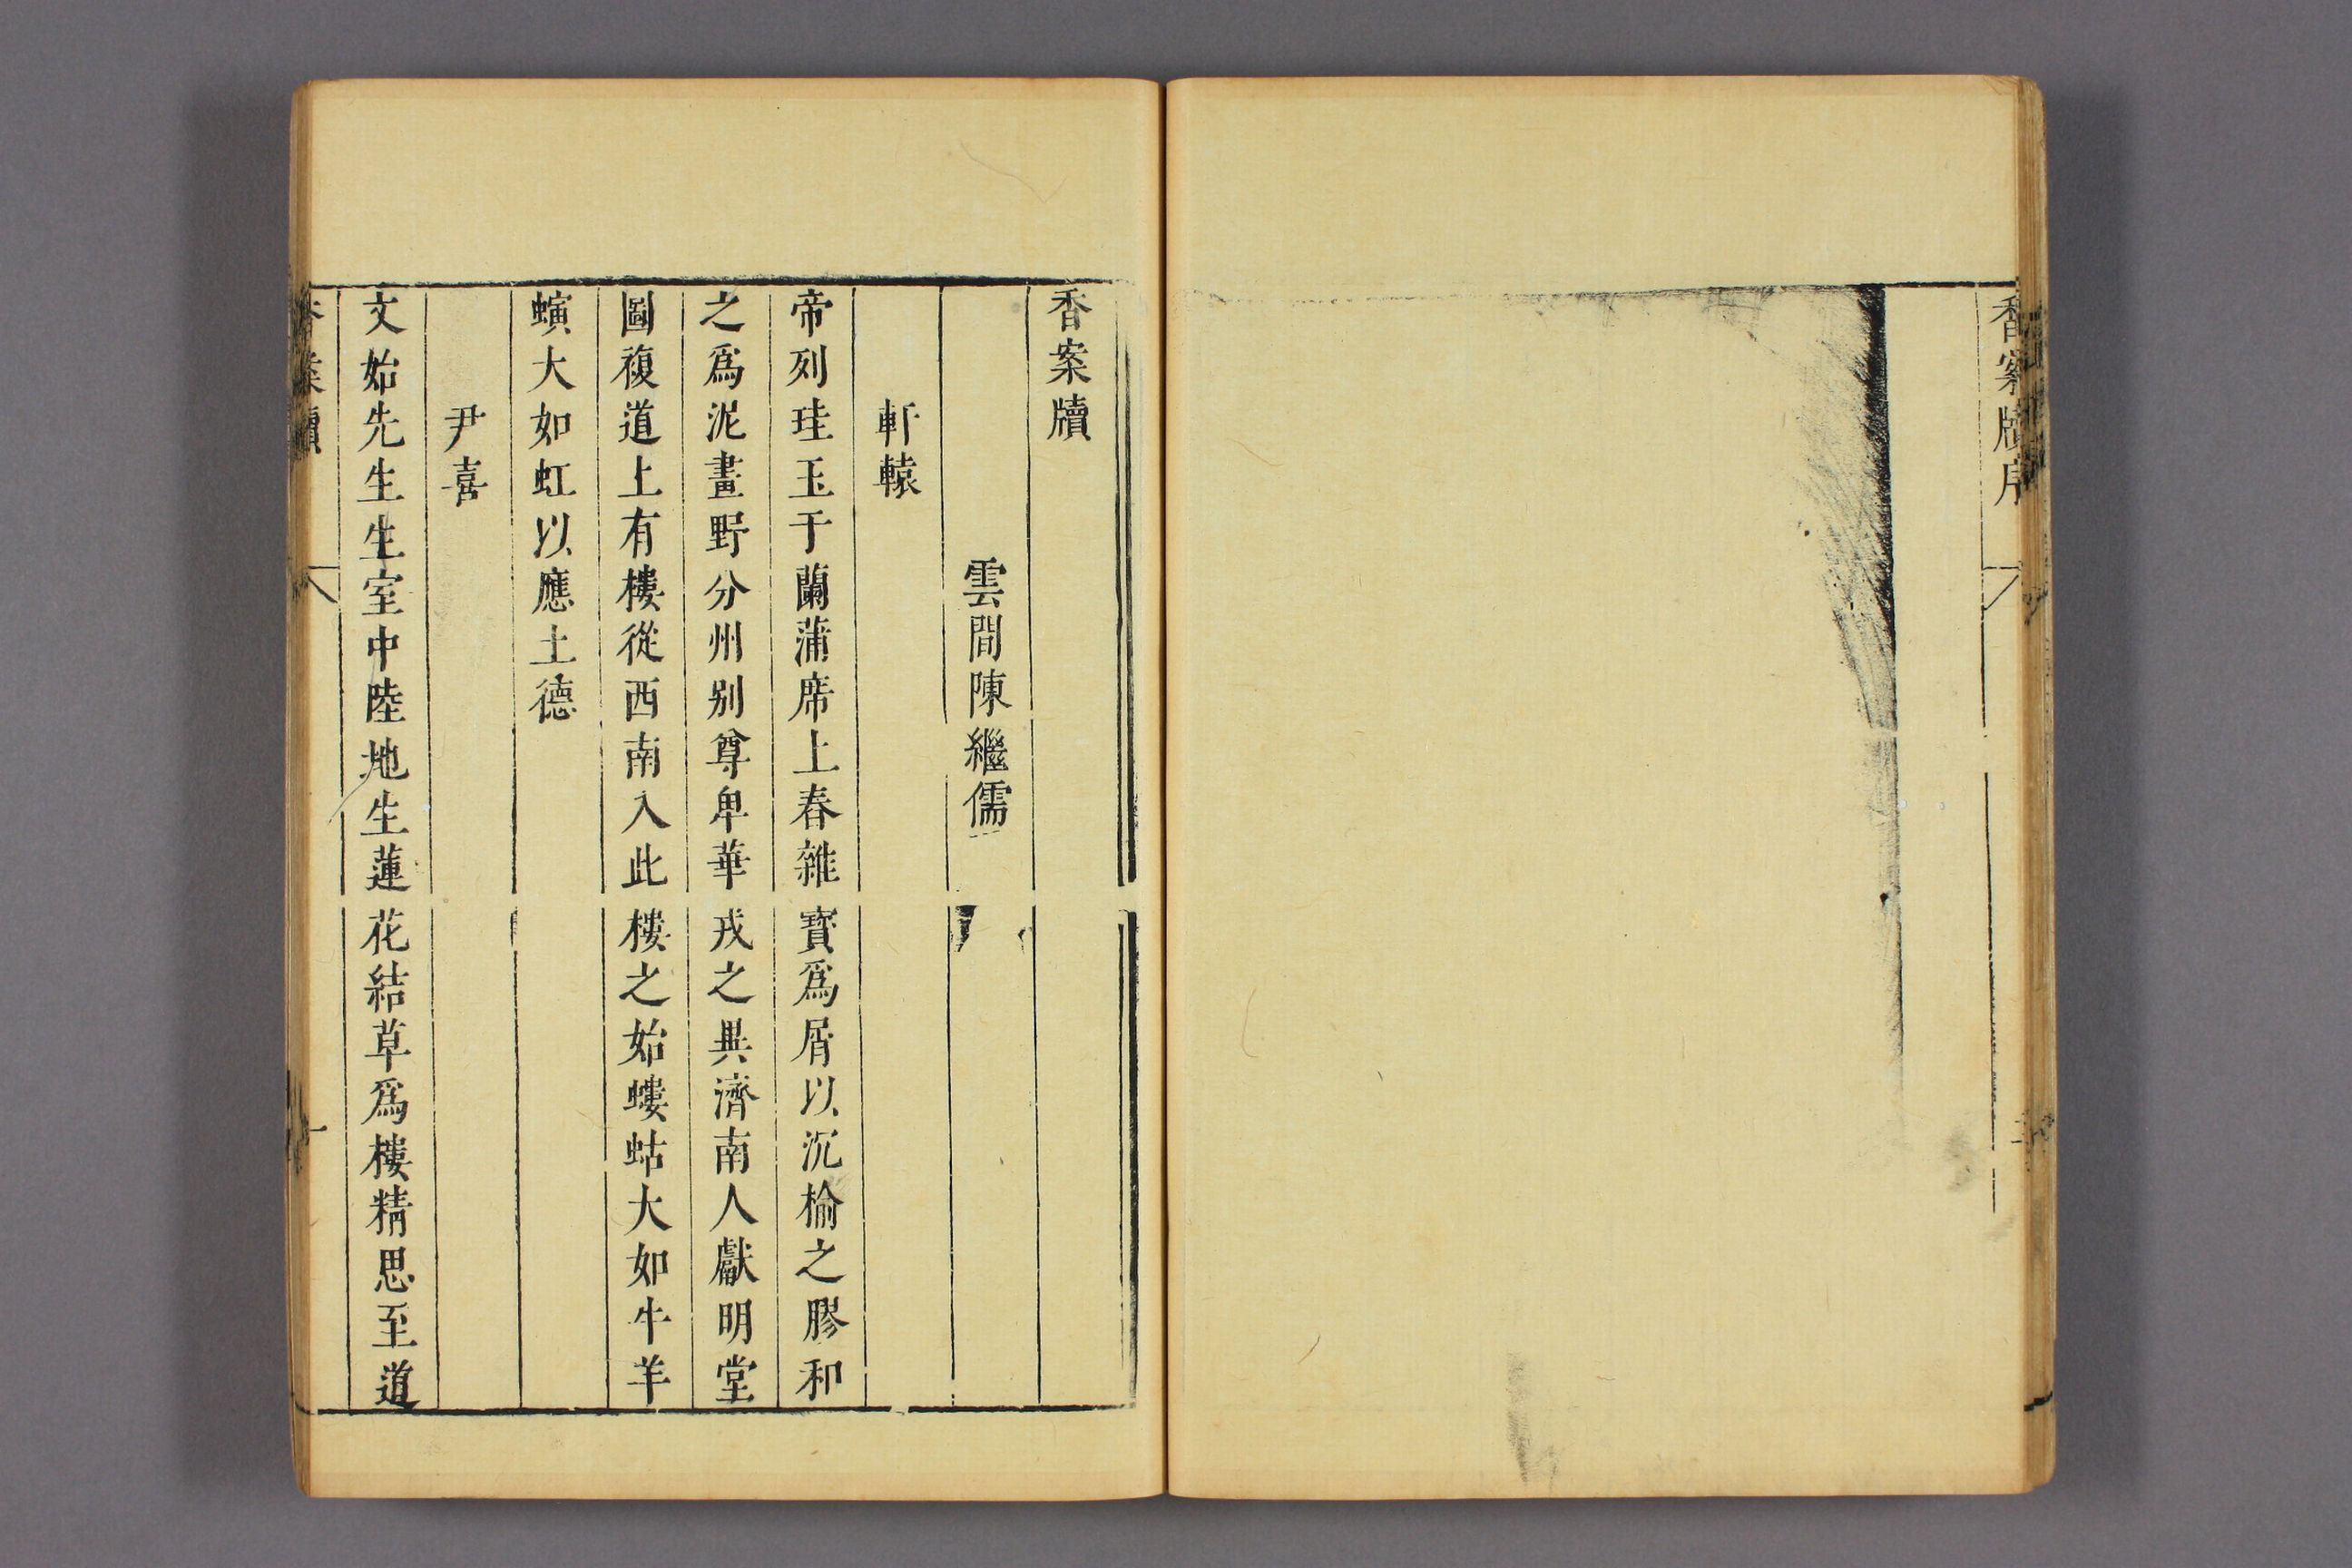 香案牘序
香案牘
雲間陳繼儒
軒轅
帝列珪玉于蘭蒲席上舂雜寶爲屑以沉榆之膠和
之爲泥畫野分州别尊卑華戎之異濟南人獻明堂
圖複道上有樓從西南入此樓之始螻蛄大如牛羊
螾大如虹以應土德
尹喜
文始先生生室中陸地生蓮花結草爲樓精思至道
香案牘
一